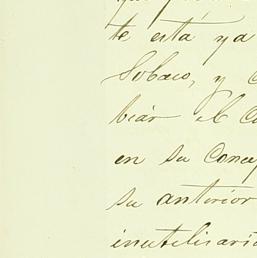 te está ya
Sobaco, y
biar el
en su Concep
su anterior
inutilisari